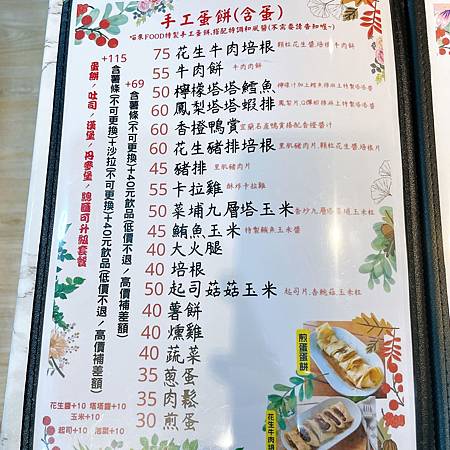 手工蛋餅(含蛋)
喵來FOOD特製手工蛋餅,搭配特調和風醬(不需要請告知喔~)
75 花生牛肉培根 顆粒花生醬.培根.牛肉餅
55 牛肉餅 牛肉肉餅
50 檸檬塔塔鱈魚
60 鳳梨塔塔蝦排
60 香橙鴨賞 宜蘭名產鴨賞搭配香橙醬汁
60 花生豬排培根 里肌豬肉片.顆粒花生醬.培根片
45 豬排 里肌豬肉片
55 卡拉雞 酥炸卡拉雞
50 菜埔九層塔玉米
45 鮪魚玉米 特製鮪魚玉米醬
40 大火腿
40 培根
50 起司菇菇玉米 起司片.香鮑菇.玉米粒
40 薯餅
40 燻雞
40 蔬菜
35 蔥蛋
35 肉鬆
30 煎蛋
+69
含薯條(不可更換)+40元飲品(低價不退/高價補差額)
+115
含薯條(不可更換)+沙拉(不可更換)+40元飲品(低價不退/高價補差額)
蛋餅/吐司/漢堡/丹麥堡/總匯可升級套餐
花生醬+10 塔塔醬+10
玉米+10
起司+10 泡菜+10
煎蛋蛋餅
花生牛肉培